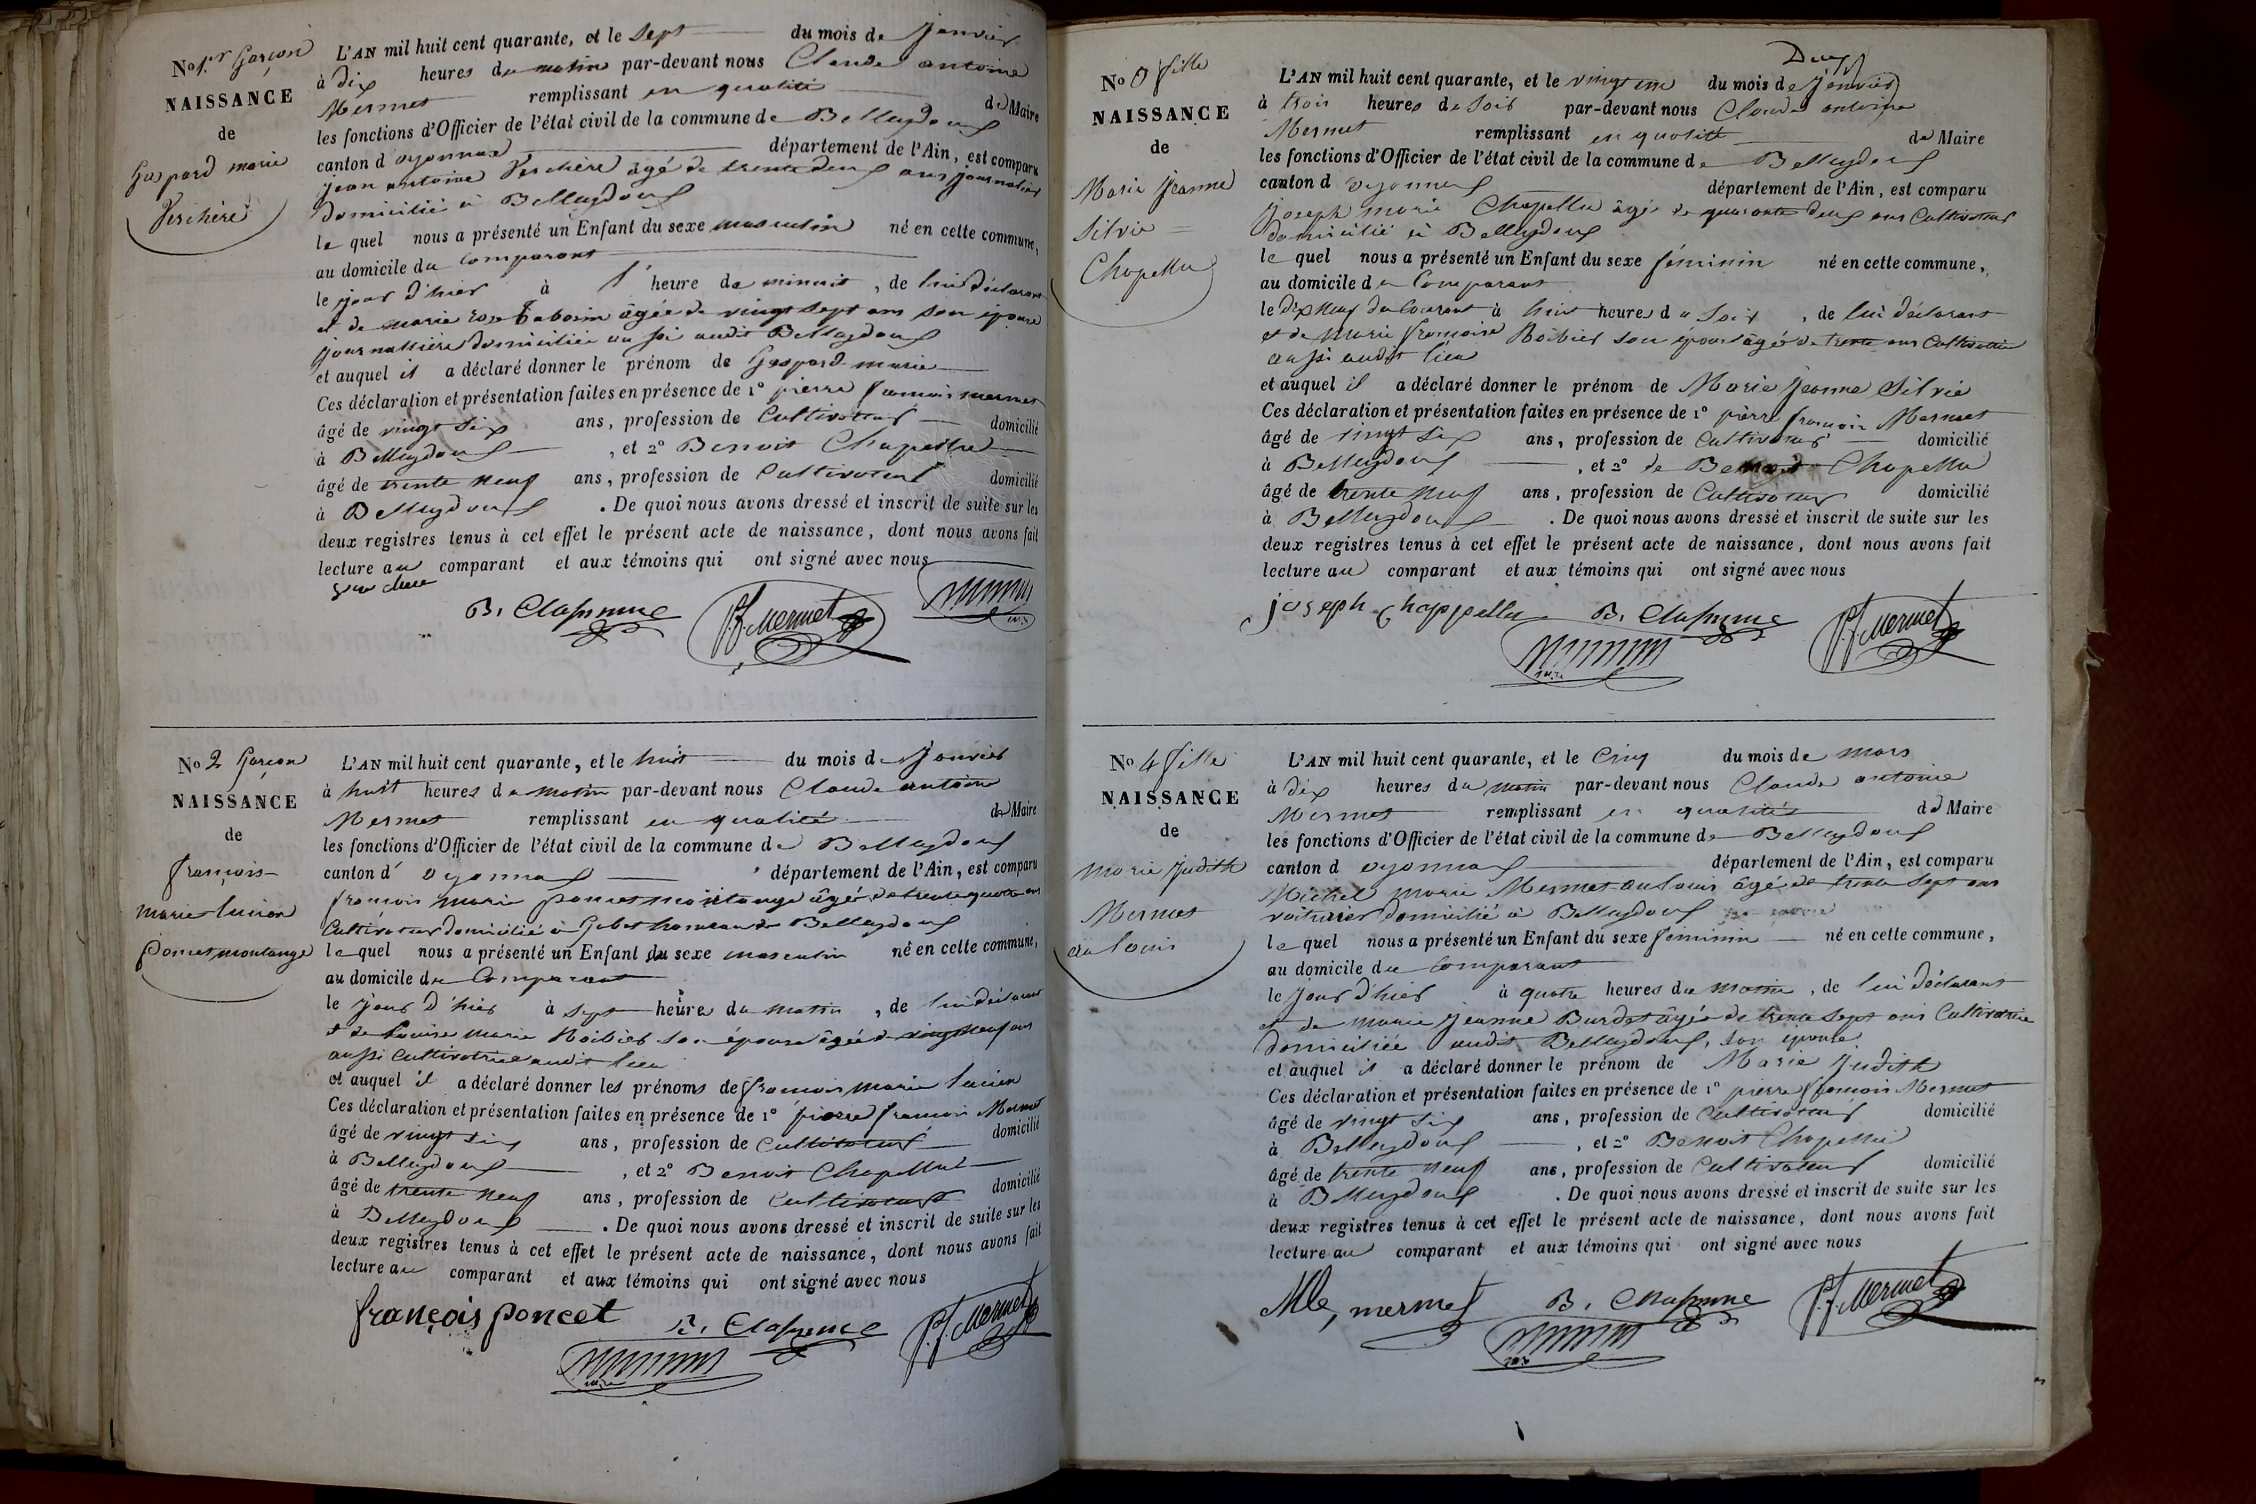 No 1.r Garçon
NAISSANCE
de
Gaspard marie
Verchère
L'AN mil huit cent quarante, et le Sept du mois de Janvier
à dix heures du matin par-devant nous Claude antoine
Mermet remplissant en qualité de Maire
les fonctions d'Officier de l'état civil de la commune de Belleydoux
canton d'oyonnax département de l'Ain, est comparu
Jean antoine Verchère âgé de trente deux ans journalier
domicilié à Belleydoux
le quel nous a présenté un Enfant du sexe masculin né en cette commune,
au domicile du Comparant
le jour d'hier à heure de minuit, de lui déclarant
et de marie rose âgée de vingt sept ans son épouse
journallière domiciliée aussi audit Belleydoux
et auquel il a déclaré donner le prénom de Gaspard marie
Ces déclaration et présentation faites en présence de 1º pierre francois mermet
âgé de vingt six ans, profession de Cultivateur domicilié
à Belleydoux, et 2º Benoit Chapellu
âgé de trente neuf ans, profession de Cultivateur domicilié
à Belleydoux. De quoi nous avons dressé et inscrit de suite sur les
deux registres tenus à cet effet le présent acte de naissance, dont nous avons fait
lecture au comparant et aux témoins qui ont signé avec nous
B.
P.f. Mermet
No 2 Garçon
NAISSANCE
de
françois
marie lucien
poncet montange
L'AN mil huit cent quarante, et le huit du mois de Janvier
à huit heures du matin par-devant nous Claude antoine
Mermet remplissant en qualité de Maire
les fonctions d'Officier de l'état civil de la commune de Belleydoux
canton d'oyonnax département de l'Ain, est comparu
francois marie poncet montange âgé de trente quatre ans
Cultivateur domicilié à hameau de Belleydoux
le quel nous a présenté un Enfant du sexe masculin né en cette commune,
au domicile du Comparant
le jour d'hier à sept heures du matin, de lui déclarant
et de Louise marie Roibier son épouse âgée de vingt neuf ans
aussi Cultivatrice audit lieu
et auquel il a déclaré donner les prénoms de francois marie lucien
Ces déclaration et présentation faites en présence de 1º pierre francois Mermet
âgé de vingt six ans, profession de Cultivateur domicilié
à Belleydoux, et 2º Benoit Chapellu
âgé de trente neuf ans, profession de Cultivateur domicilié
à Belleydoux. De quoi nous avons dressé et inscrit de suite sur les
deux registres tenus à cet effet le présent acte de naissance, dont nous avons fait
lecture au comparant et aux témoins qui ont signé avec nous
françois poncet B.
P.f. Mermet
Deux
No 3 fille
NAISSANCE
de
Marie Jeanne
Silvie
Chapellu
L'AN mil huit cent quarante, et le vingt un du mois de Janvier
à trois heures de Soir par-devant nous Claude antoine
Mermet remplissant en qualité de Maire
les fonctions d'Officier de l'état civil de la commune de Belleydoux
canton d oyonnax département de l'Ain, est comparu
Joseph marie Chapellu âgé de quarante deux ans Cultivateur
domicilié à Belleydoux
le quel nous a présenté un Enfant du sexe féminin né en cette commune,
au domicile du Comparant
le dix neuf du Courant à huit heures du Soir, de lui déclarant
et de Marie françoise Roibier son épouse âgée de trente ans Cultivatrice
aussi audit lieu
et auquel il a déclaré donner le prénom de Marie Jeanne Silvie
Ces déclaration et présentation faites en présence de 1º pierre francois Mermet
âgé de vingt six ans, profession de Cultivateur domicilié
à Belleydoux, et 2º de Benoit Chapellu
âgé de trente neuf ans, profession de Cultivateur domicilié
à Belleydoux. De quoi nous avons dressé et inscrit de suite sur les
deux registres tenus à cet effet le présent acte de naissance, dont nous avons fait
lecture au comparant et aux témoins qui ont signé avec nous
joseph chappellu B.
P.f. Mermet
No 4 fille
NAISSANCE
de
marie Judith
Mermet
au louis
L'AN mil huit cent quarante, et le Cinq du mois de mars
à dix heures du matin par-devant nous Claude antoine
Mermet remplissant en qualité de Maire
les fonctions d'Officier de l'état civil de la commune de Belleydoux
canton d oyonnax département de l'Ain, est comparu
Michel marie Mermet au louis âgé de trente sept ans
voiturier domicilié à Belleydoux
le quel nous a présenté un Enfant du sexe féminin né en cette commune,
au domicile du Comparant
le jour d'hier à quatre heures du matin, de lui déclarant
et de marie Jeanne Burdet âgée de trente sept ans Cultivatrice
domiciliée audit Belleydoux, son épouse
et auquel il a déclaré donner le prénom de Marie Judith
Ces déclaration et présentation faites en présence de 1º pierre francois Mermet
âgé de vingt six ans, profession de Cultivateur domicilié
à Belleydoux, et 2º Benoit Chapellu
âgé de trente neuf ans, profession de Cultivateur domicilié
à Belleydoux. De quoi nous avons dressé et inscrit de suite sur les
deux registres tenus à cet effet le présent acte de naissance, dont nous avons fait
lecture au comparant et aux témoins qui ont signé avec nous
Mle, mermet B.
P.f. Mermet